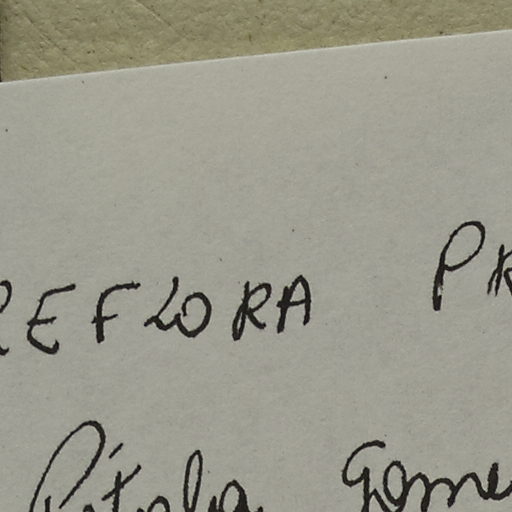 REFLORA PR
Pítala Gome